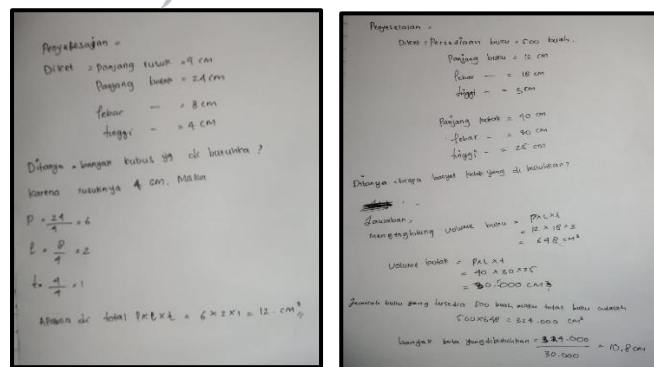 Penyelesaian =
Diket = Panjang rusuk = 4 cm
Panjang balok = 24 cm
Lebar — = 8 cm
tinggi — = 4 cm
Ditanya = banyak kubus yg di butuhka ?
Karena rusuknya 4 cm, Maka
P = 24/4 = 6
l = 8/4 = 2
t = 4/4 = 1
di total P x l x t = 6 x 2 x 1 = 12 cm³
Penyelesaian =
Diket = Persediaan buku = 500 buah.
Panjang buku = 12 cm
lebar — = 18 cm
tinggi — = 3 cm
Panjang kotak = 40 cm
lebar - = 30 cm
tinggi - = 25 cm
Ditanya = berapa banyak kotak yang di butuhkan?
Jawaban,
menghitung volume buku = P x L x t
= 12 x 18 x 3
= 648 cm³
volume kotak = P x L x t
= 40 x 30 x 25
= 30.000 cm3
Jumlah buku yang tersedia 500 buah, maka total buku adalah
500 x 648 = 324.000 cm³
banyak kotak yang dibutuhkan = 324.000/30.000 = 10,8 cm